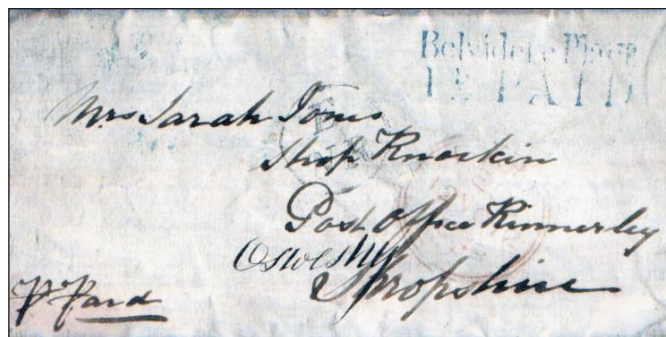 Belvidere Place
1 P. PAID
Mrs Sarah Jones
Shop Knockin
Post Office Kinnerley
Oswestry
Shropshire
P Paid